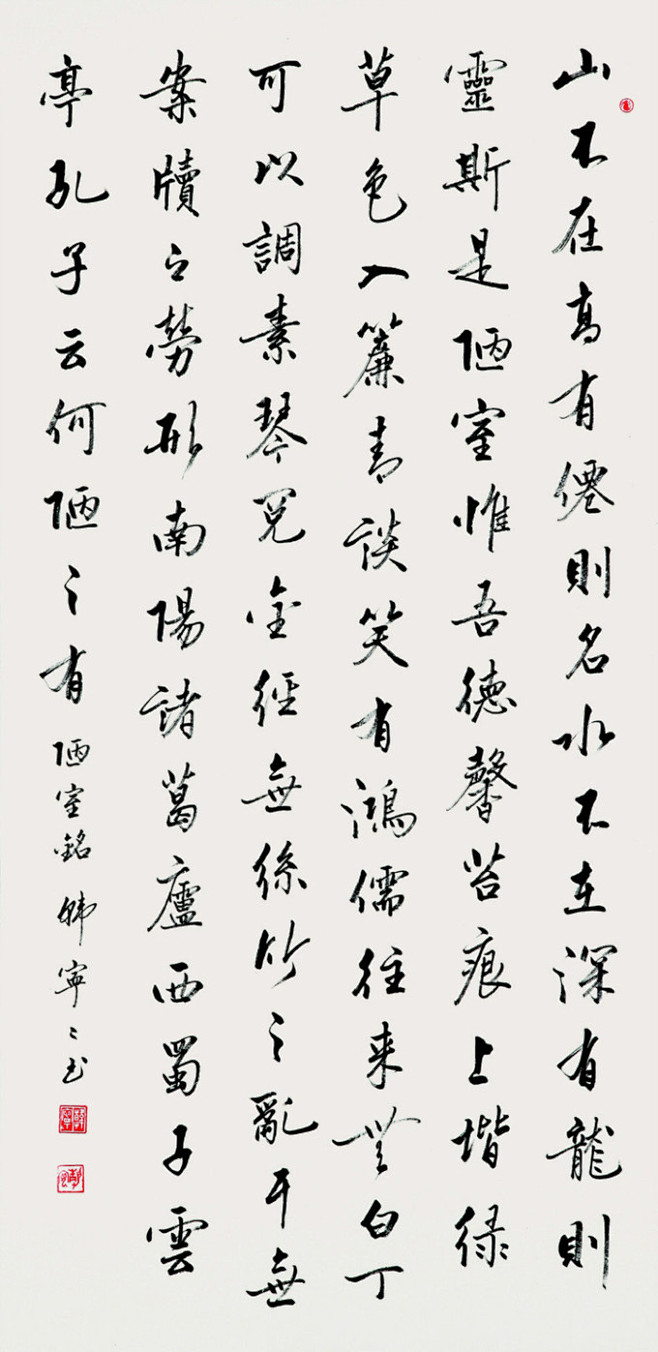 山不在高有僊則名水不在深有龍則
靈斯是陋室惟吾德馨苔痕上堦緑
草色入簾青談笑有鴻儒往来無白丁
可以調素琴閲金經無絲竹之亂耳無
案牘之勞形南陽諸葛廬西蜀子雲
亭孔子云何陋之有 陋室銘 韩寧〻书